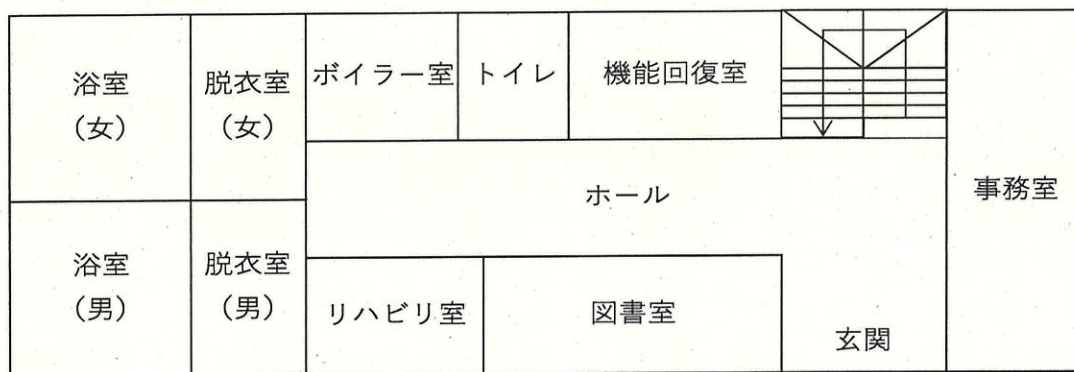 浴室
（女）
脱衣室
（女）
ボイラー室
トイレ
機能回復室
ホール
事務室
浴室
（男）
脱衣室
（男）
リハビリ室
図書室
玄関